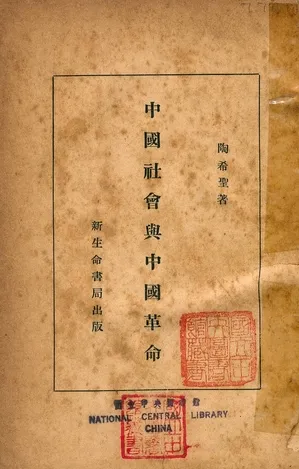 陶希聖著
中國社會與中國革命
新生命書局出版
NATIONAL CENTRAL LIBRARY
CHINA